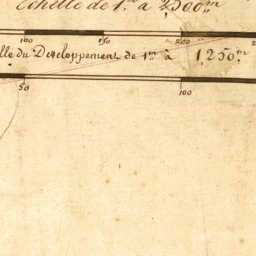 Echelle de 1.m a 2500m
100 150 200
lle du Developpement de 1m à 1250.m
50 100